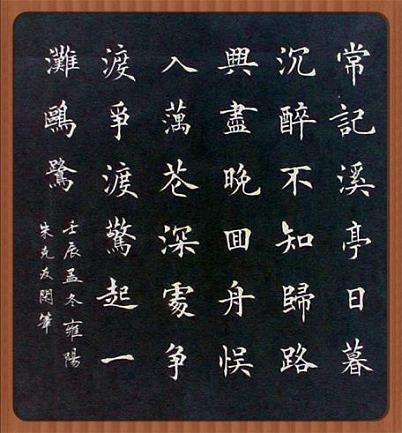 常記溪亭日暮
沉醉不知歸路
興盡晚囬舟悮
入藕花深處争
渡爭渡驚起一
灘鷗鷺
壬辰孟冬雍陽
朱克友閑筆